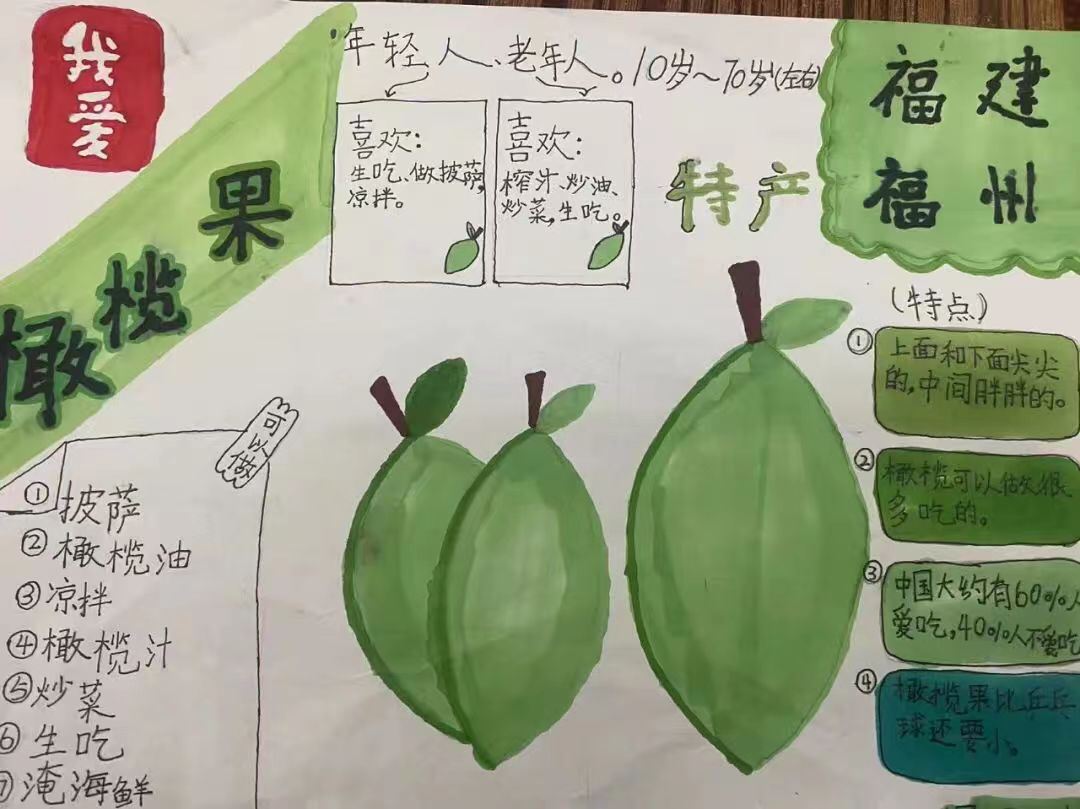 我爱
橄榄果
年轻人、老年人。10岁~70岁(左右)
喜欢:
生吃、做披萨,
凉拌。
喜欢:
榨汁、炒油、
炒菜,生吃。
特产
福建
福州
(特点)
①上面和下面尖尖
的,中间胖胖的。
②橄榄可以做很
多吃的。
③中国大约有60%人
爱吃,40%人不爱吃
④橄榄果比乒乓
球还要小。
可以做
①披萨
②橄榄油
③凉拌
④橄榄汁
⑤炒菜
⑥生吃
⑦淹海鲜